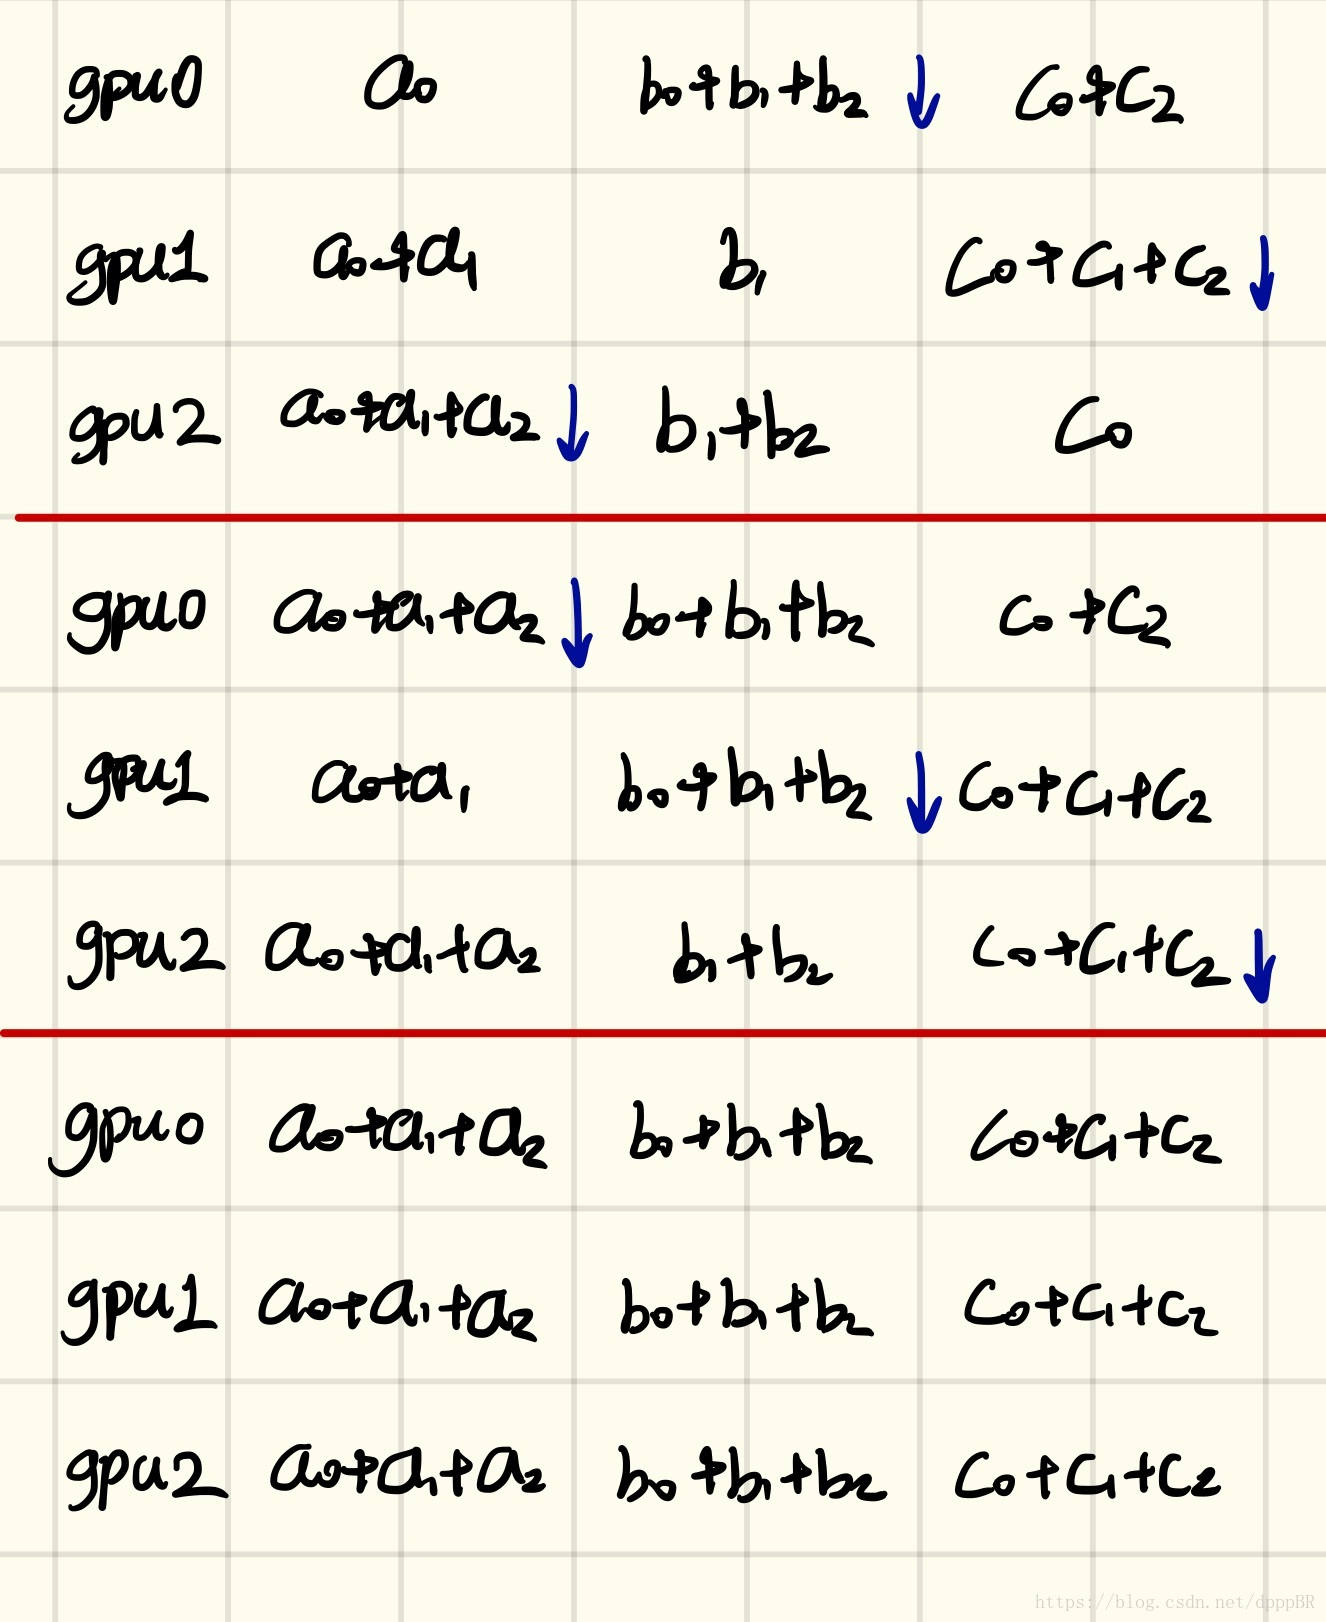 gpu0 a₀ b₀+b₁+b₂ ↓ c₀+c₂
gpu1 a₀+a₁ b₁ c₀+c₁+c₂ ↓
gpu2 a₀+a₁+a₂ ↓ b₁+b₂ c₀
gpu0 a₀+a₁+a₂ ↓ b₀+b₁+b₂ c₀+c₂
gpu1 a₀+a₁ b₀+b₁+b₂ ↓ c₀+c₁+c₂
gpu2 a₀+a₁+a₂ b₁+b₂ c₀+c₁+c₂ ↓
gpu0 a₀+a₁+a₂ b₀+b₁+b₂ c₀+c₁+c₂
gpu1 a₀+a₁+a₂ b₀+b₁+b₂ c₀+c₁+c₂
gpu2 a₀+a₁+a₂ b₀+b₁+b₂ c₀+c₁+c₂
https://blog.csdn.net/dpppBR